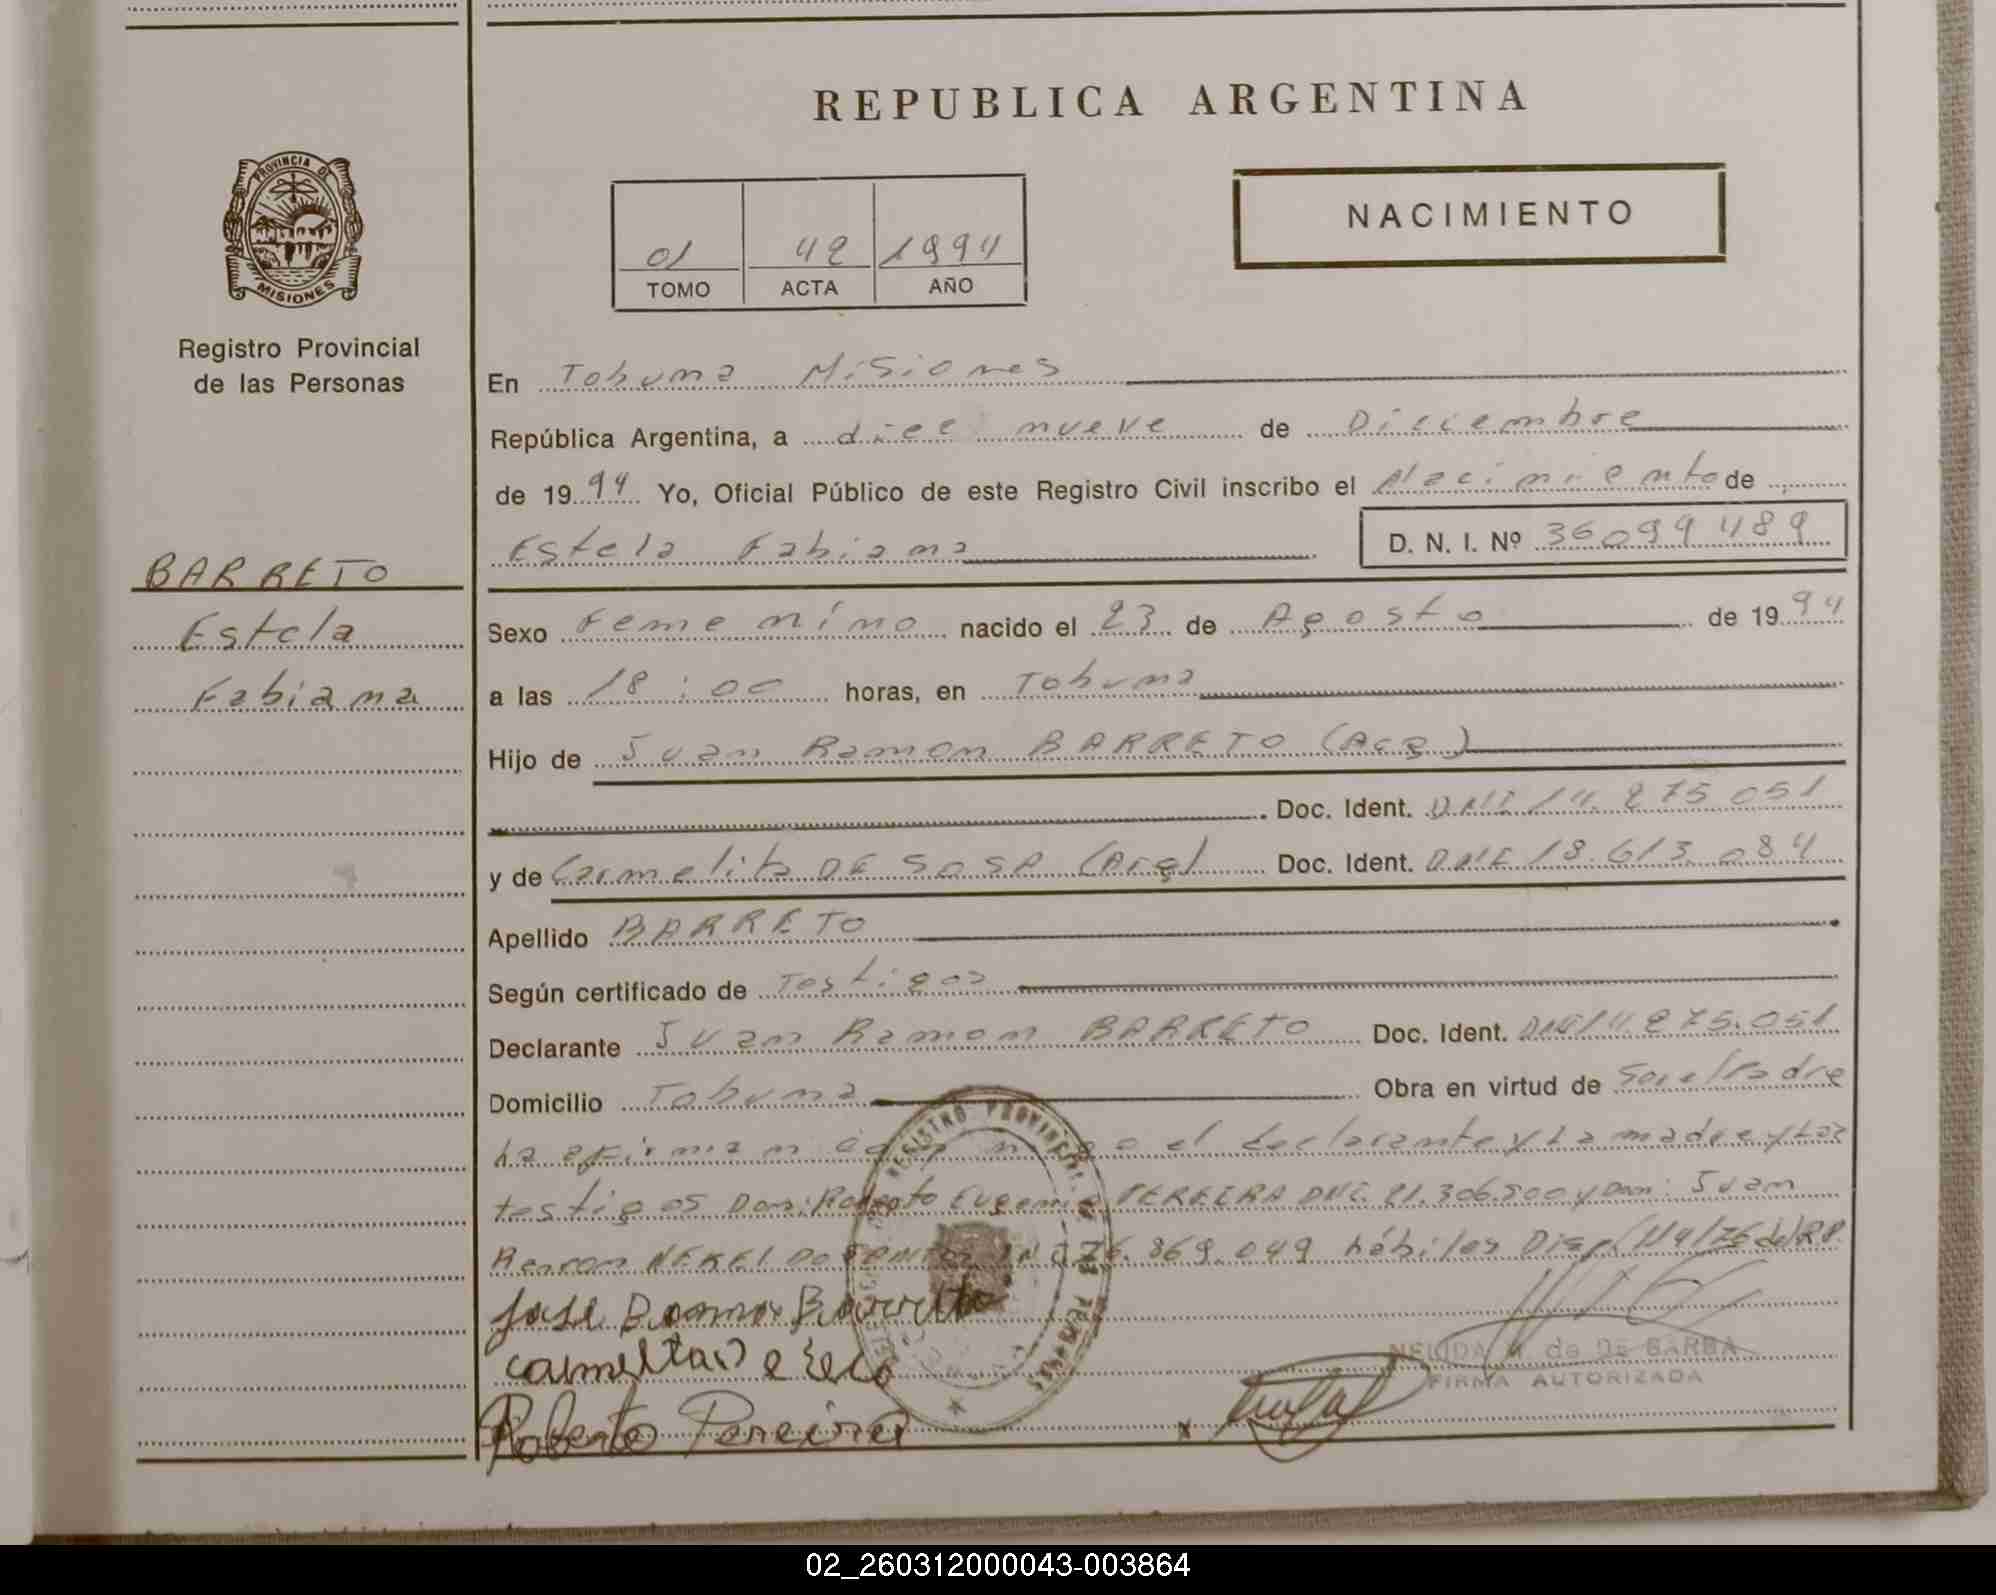 REPUBLICA ARGENTINA
PROVINCIA DE
MISIONES
Registro Provincial
de las Personas
01 42 1994
TOMO ACTA AÑO
NACIMIENTO
En Tobuna Misiones
República Argentina, a diec nueve de Diciembre
de 1994 Yo, Oficial Público de este Registro Civil inscribo el Nacimiento de
Estela Fabiana D. N. I. Nº 36099489
BARRETO
Estela
Fabiana
Sexo Femenino nacido el 23 de Agosto de 1994
a las 18:00 horas, en Tobuna
Hijo de Juan Ramon BARRETO (Arg)
Doc. Ident. DNI 14.275.051
y de Carmelita DE SOSA (Arg) Doc. Ident. DNI 18.613.084
Apellido BARRETO
Según certificado de Testigos
Declarante Juan Ramon BARRETO Doc. Ident. DNI 14.275.051
Domicilio Tobuna Obra en virtud de Ser el Padre
La firman el declarante y La madre y Los
testigos Don: Roberto Eugenio PEREIRA DNI. 21.306.500 y Don: Juan
Ramon 869.049 hábiles Disp.
Barreto
Roberto Pereira
NELIDA M. de De BARBA
FIRMA AUTORIZADA
REGISTRO PROVINCIAL DE LAS PERSONAS
02_260312000043-003864